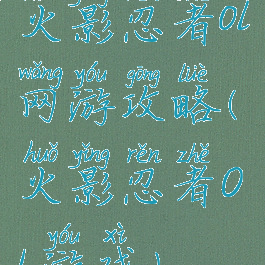 火影忍者Ol
wǎng yóu gōng lüè
网游攻略(
huǒ yǐng rěn zhě
火影忍者O
yóu xì
l游戏)